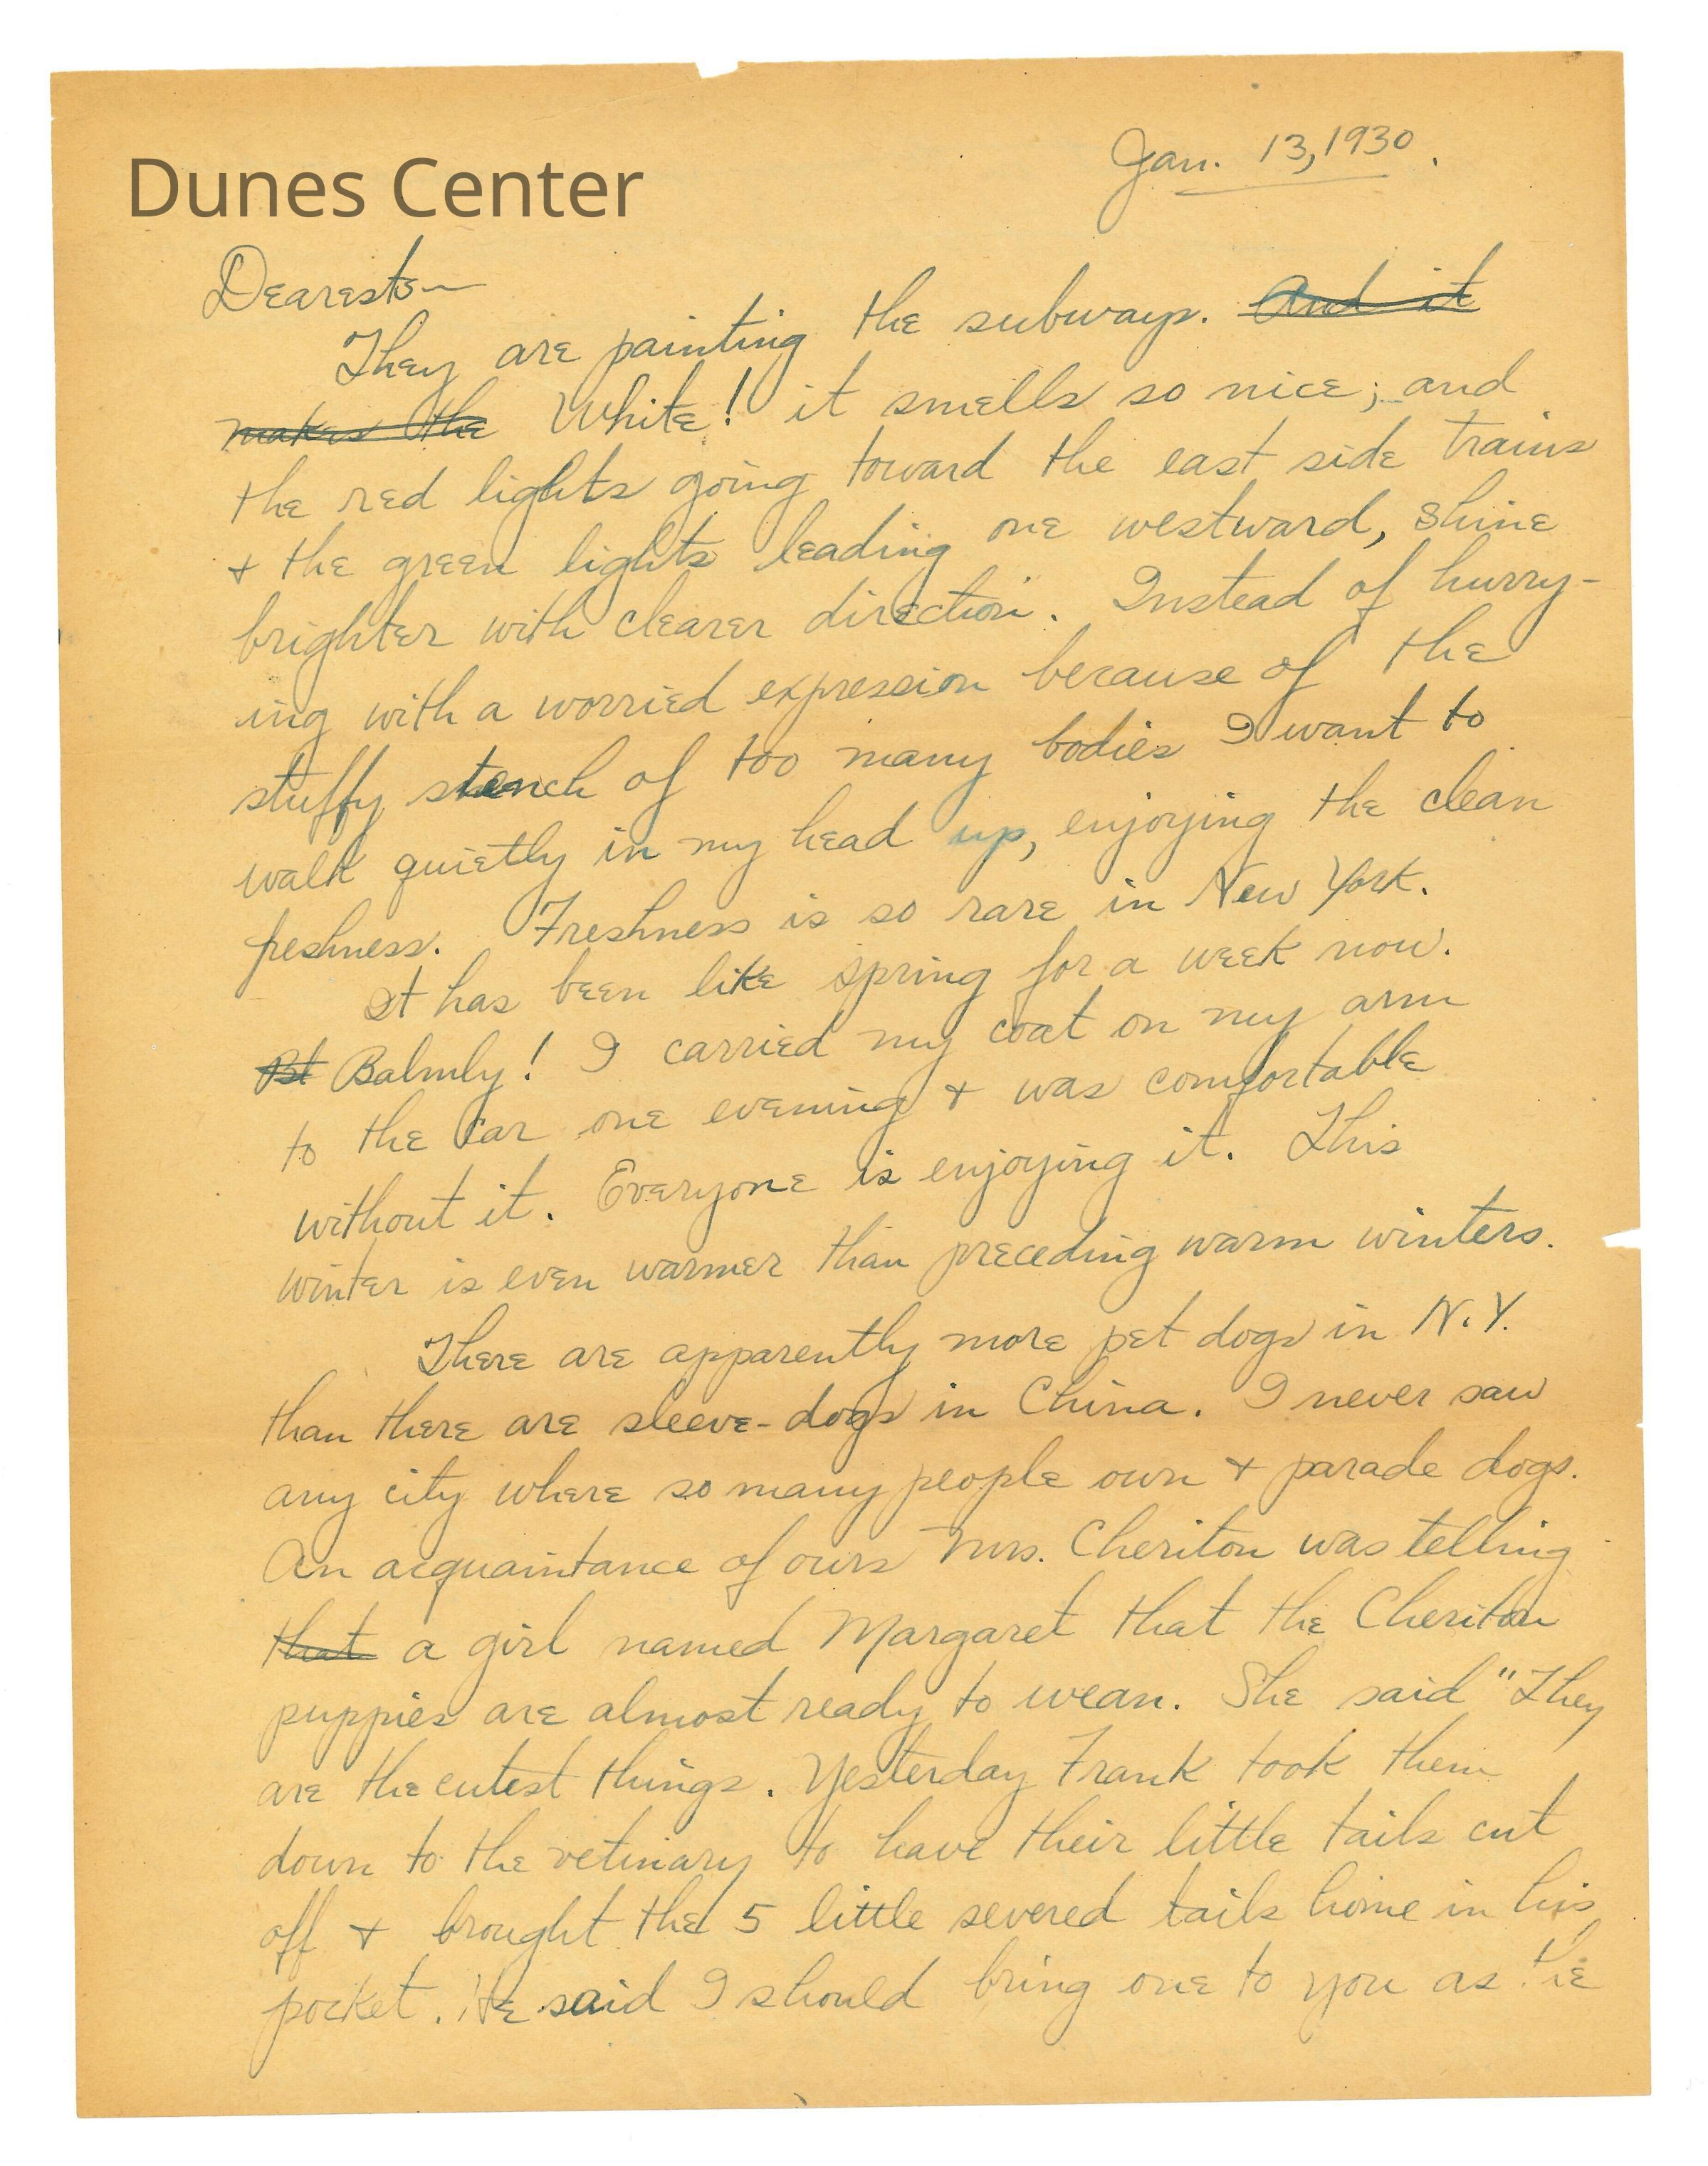 Jan. 13, 1930.
Dunes Center
Dearests—
They are painting the subways. And it
makes the White! it smells so nice; and
the red lights going toward the east side trains
+ the green lights leading one westward, shine
brighter with clearer direction. Instead of hurry-
ing with a worried expression because of the
stuffy stench of too many bodies I want to
walk quietly in my head up, enjoying the clean
freshness. Freshness is so rare in New York.
It has been like spring for a week now.
Balmly! I carried my coat on my arm
to the car one evening + was comfortable
without it. Everyone is enjoying it. This
winter is even warmer than preceding warm winters.
There are apparently more pet dogs in N.Y.
than there are sleeve-dogs in China. I never saw
any city where so many people own + parade dogs.
An acquaintance of ours Mrs. Cheriton was telling
that a girl named Margaret that the Cheriton
puppies are almost ready to wean. She said "They
are the cutest things. Yesterday Frank took them
down to the vetinary to have their little tails cut
off + brought the 5 little severed tails home in his
pocket. He said I should bring one to you as the